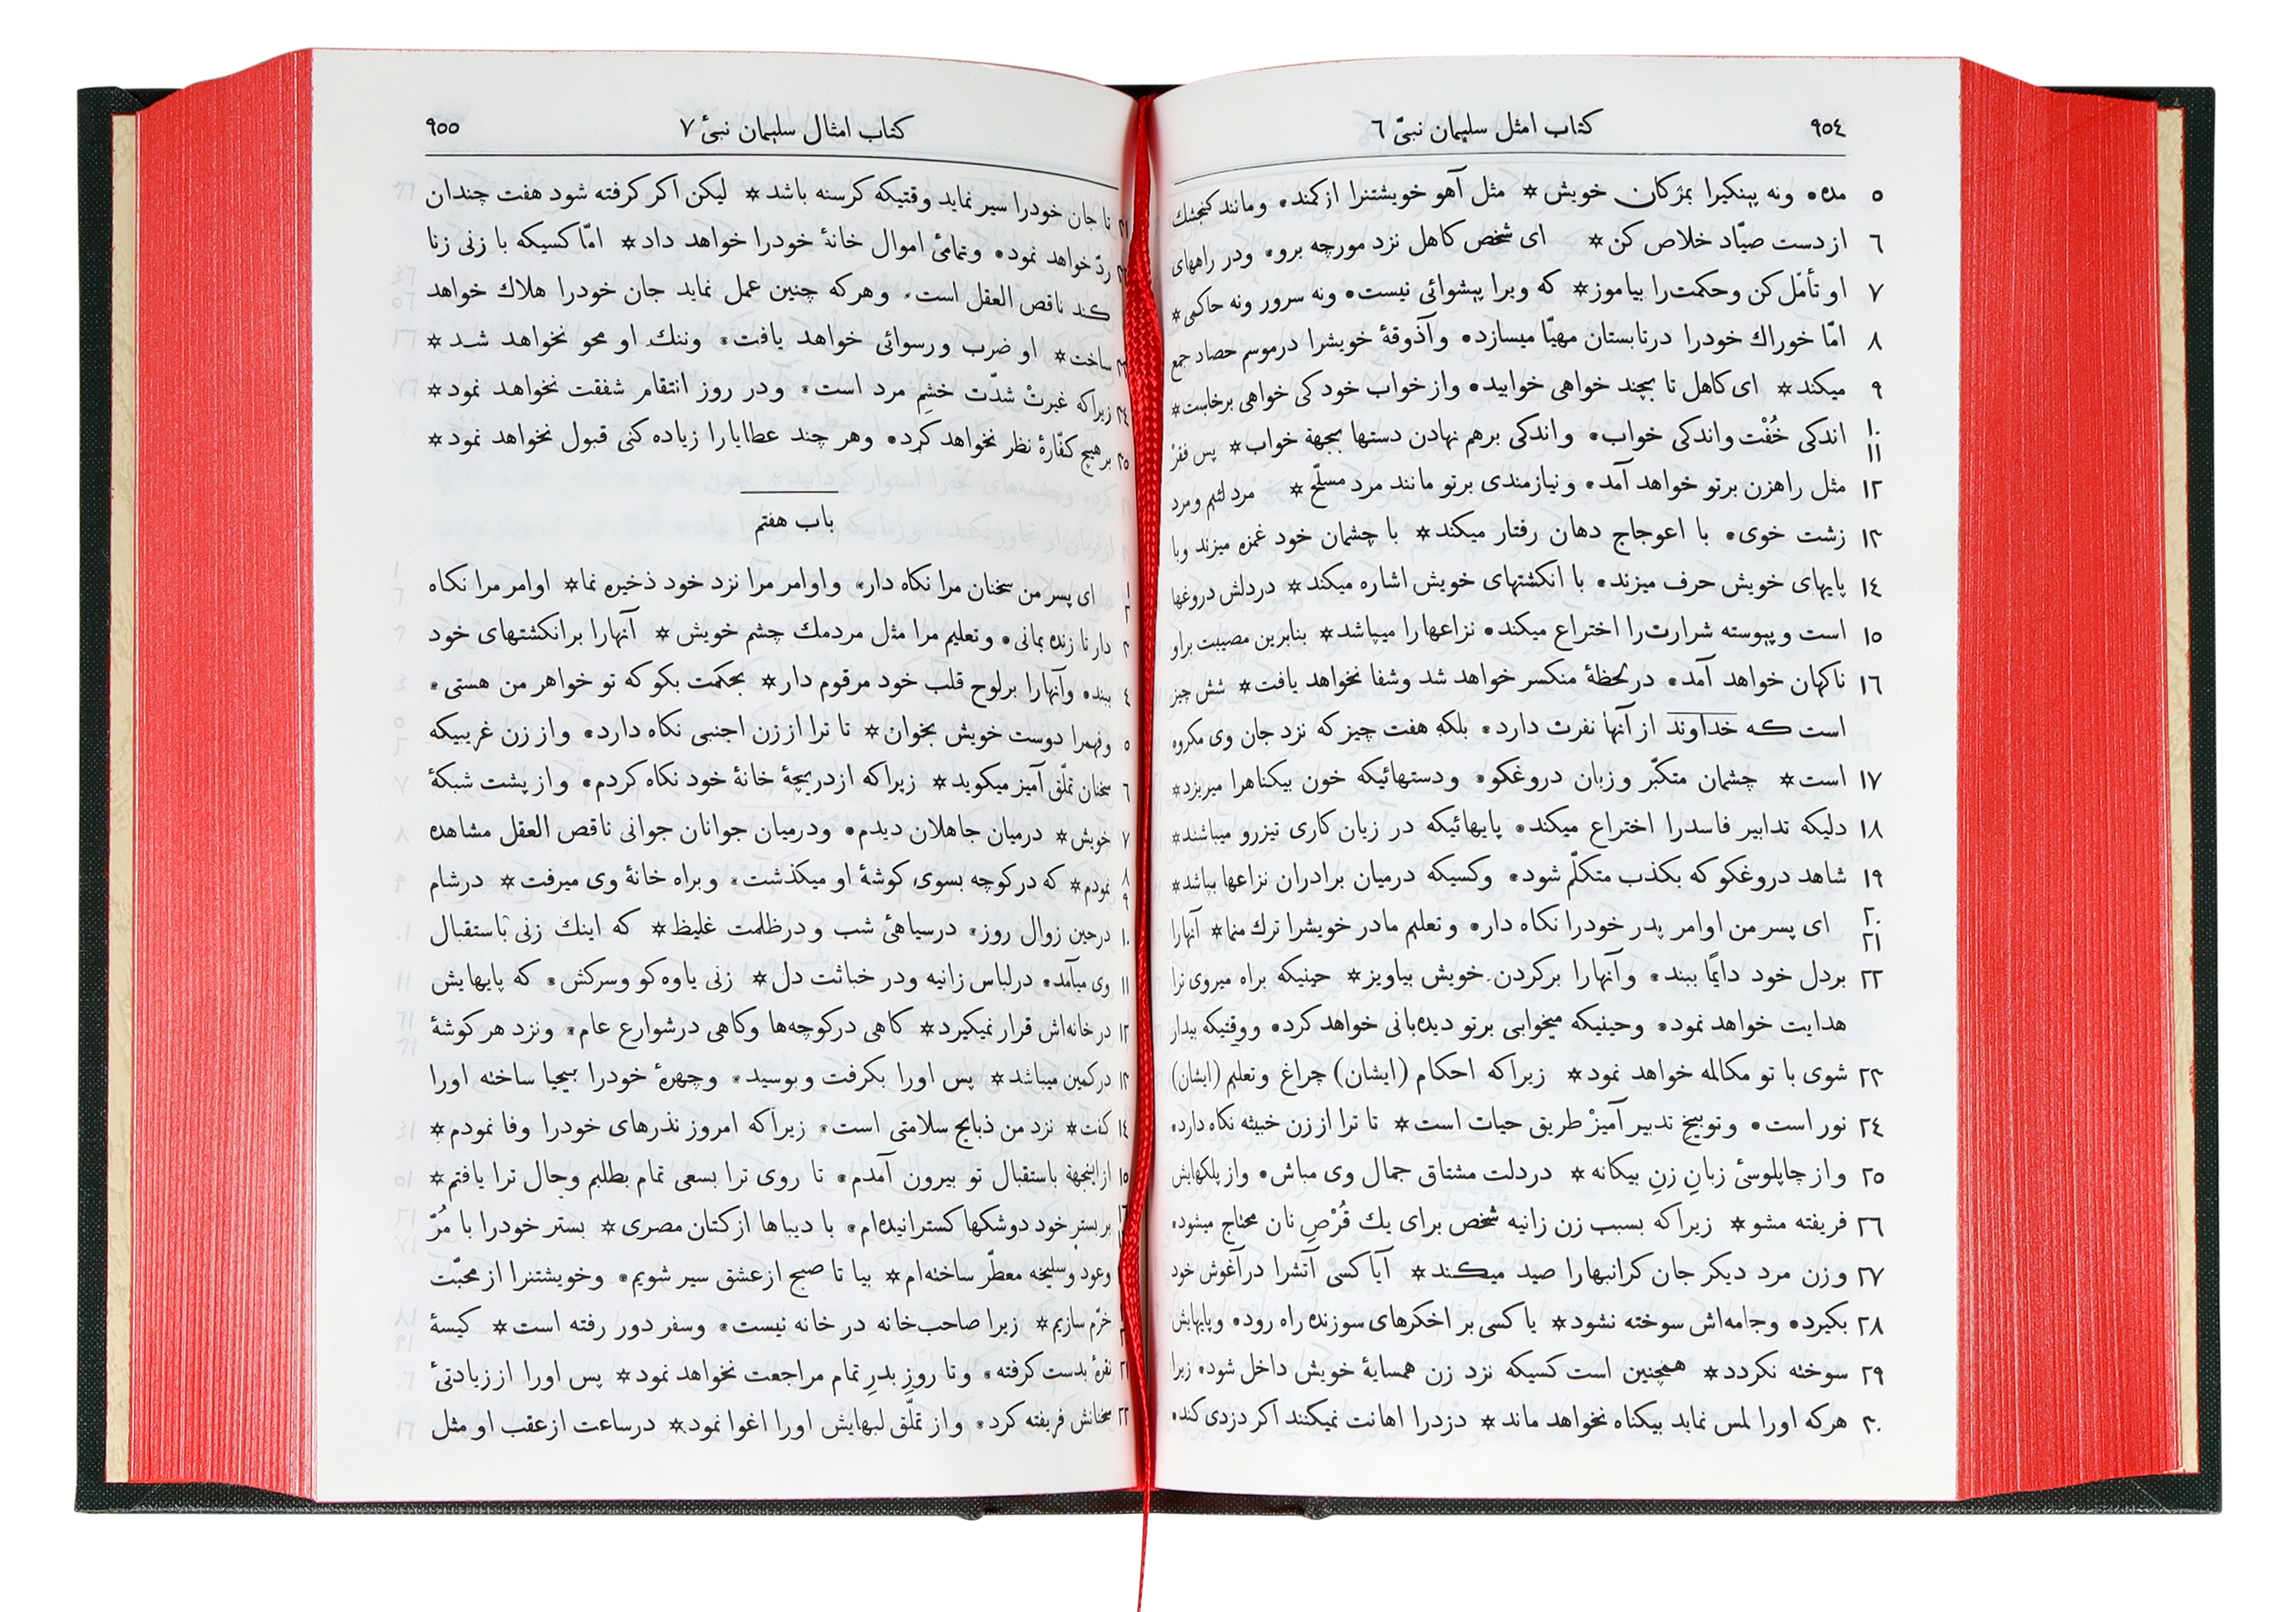 ٩٥٤ كتاب امثل سلیمان نبیّ ٦
٥ مده٭ ونه پینکیرا بمژکان خویش ✡ مثل آهو خویشتنرا ازکمند٭ ومانند کنجشك
٦ ازدست صیّاد خلاص کن ✡ ای شخص کاهل نزد مورچه برو٭ ودر راههای
٧ او تأمّل کن وحکمت‌را بیاموز ✡ که ویرا پیشوائی نیست٭ ونه سرور ونه حاکمی ✡
٨ امّا خوراك خودرا درتابستان مهیّا میسازد٭ وآذوقۀ خویشرا درموسم حصاد جمع
٩ میکند ✡ ای کاهل تا بچند خواهی خوابید٭ واز خواب خود کی خواهی برخاست ✡
١٠ ١١ اندکی خُفْت واندکی خواب٭ واندکی برهم نهادن دستها بجهة خواب ✡ پس فقرْ
١٢ مثل راهزن برتو خواهد آمد٭ ونیازمندی برتو مانند مرد مسلّح ✡ مرد لئیم ومرد
١٣ زشت خوی٭ با اعوجاج دهان رفتار میکند ✡ با چشمان خود غمزه میزند وبا
١٤ پایهای خویش حرف میزند٭ با انکشتهای خویش اشاره میکند ✡ دردلش دروغها
١٥ است وپیوسته شرارت‌را اختراع میکند٭ نزاعها را میپاشد ✡ بنابرین مصیبت براو
١٦ ناکهان خواهد آمد٭ درلحظۀ منکسر خواهد شد وشفا نخواهد یافت ✡ شش چیز
است که خداوند ازآنها نفرت دارد٭ بلکه هفت چیز که نزد جان وی مکروه
١٧ است ✡ چشمان متکبّر وزبان دروغکو٭ ودستهائیکه خون بیکناهرا میریزد ✡
١٨ دلیکه تدابیر فاسدرا اختراع میکند٭ پایهائیکه در زیان کاری تیزرو میباشند ✡
١٩ شاهد دروغکو که بکذب متکلّم شود٭ وکسیکه درمیان برادران نزاعها بپاشد ✡
٢٠ ٢١ ای پسر من اوامر پدر خودرا نکاه دار٭ وتعلیم مادر خویشرا ترك منما ✡ آنهارا
٢٢ بردل خود دایمًا ببند٭ وآنهارا برکردن خویش بیاویز ✡ حینیکه براه میروی ترا
هدایت خواهد نمود٭ وحینیکه میخوابی برتو دیده‌بانی خواهد کرد٭ ووقتیکه بیدار
٢٣ شوی با تو مکالمه خواهد نمود ✡ زیراکه احکام (ایشان) چراغ وتعلیم (ایشان)
٢٤ نور است٭ وتوبیخ تدبیر آمیزْ طریق حیات است ✡ تا ترا اززن خبیثه نکاه دارد٭
٢٥ واز چاپلوسئ زبانِ زنِ بیکانه ✡ دردلت مشتاق جمال وی مباش٭ واز پلکهایش
٢٦ فریفته مشو ✡ زیراکه بسبب زن زانیه شخص برای یك قُرْصِ نان محتاج میشود٭
٢٧ وزن مرد دیکر جان کرانبهارا صید میکند ✡ آیا کسی آتشرا درآغوش خود
٢٨ بکیرد٭ وجامه‌اش سوخته نشود ✡ یا کسی بر اخکرهای سوزنده راه رود٭ وپایهایش
٢٩ سوخته نکردد ✡ همچنین است کسیکه نزد زن همسایۀ خویش داخل شود٭ زیرا
٣٠ هرکه اورا لمس نماید بیکناه نخواهد ماند ✡ دزدرا اهانت نمیکنند اکر دزدی کند٭
کتاب امثال سلیمان نبیْ ٧ ٩٥٥
٣١ تا جان خودرا سیر نماید وقتیکه کرسنه باشد ✡ لیکن اکر کرفته شود هفت چندان
٣٢ ردّ خواهد نمود٭ وتمامئ اموال خانۀ خودرا خواهد داد ✡ امّا کسیکه با زنی زنا
کند ناقص العقل است٭ وهرکه چنین عمل نماید جان خودرا هلاك خواهد
٣٣ ساخت ✡ او ضرب ورسوائی خواهد یافت٭ وننك او محو نخواهد شد ✡
٣٤ زیراکه غیرتْ شدّت خشمِ مرد است٭ ودر روز انتقام شفقت نخواهد نمود ✡
٣٥ برهیچ کفّارۀ نظر نخواهد کرد٭ وهر چند عطایارا زیاده کنی قبول نخواهد نمود ✡
باب هفتم
١ ٢ ای پسر من سخنان مرا نکاه دار٭ واوامر مرا نزد خود ذخیره نما ✡ اوامر مرا نکاه
٣ دار تا زنده بمانی٭ وتعلیم مرا مثل مردمك چشم خویش ✡ آنهارا برانکشتهای خود
٤ ببند٭ وآنهارا برلوح قلب خود مرقوم دار ✡ بحکمت بکو که تو خواهر من هستی٭
٥ وفهمرا دوست خویش بخوان ✡ تا ترا اززن اجنبی نکاه دارد٭ واز زن غریبیکه
٦ سخنان تملّق آمیز میکوید ✡ زیراکه ازدریچۀ خانۀ خود نکاه کردم٭ واز پشت شبکۀ
٧ خویش ✡ درمیان جاهلان دیدم٭ ودرمیان جوانان جوانی ناقص العقل مشاهده
٨ ٩ نمودم ✡ که درکوچه بسوی کوشۀ او میکذشت٭ وبراه خانۀ وی میرفت ✡ درشام
١٠ درحین زوال روز٭ درسیاهئ شب ودرظلمت غلیظ ✡ که اینك زنی باستقبال
١١ وی میآمد٭ درلباس زانیه ودر خباثت دل ✡ زنی یاوه‌کو وسرکش٭ که پایهایش
١٢ درخانه‌اش قرار نمیکیرد ✡ کاهی درکوچه‌ها وکاهی درشوارع عام٭ ونزد هر کوشۀ
١٣ درکمین میباشد ✡ پس اورا بکرفت وبوسید٭ وچهرۀ خودرا بیحیا ساخته اورا
١٤ کفت ✡ نزد من ذبایح سلامتی است٭ زیراکه امروز نذرهای خودرا وفا نمودم ✡
١٥ ازاینجهة باستقبال تو بیرون آمدم٭ تا روی ترا بسعی تمام بطلبم وحال ترا یافتم ✡
١٦ بربستر خود دوشکها کسترانیده‌ام٭ با دیباها از کتان مصری ✡ بستر خودرا با مُرّ
وعود وسلیخه معطّر ساخته‌ام ✡ بیا تا صبح ازعشق سیر شویم٭ وخویشتنرا ازمحبّت
خرّم سازیم ✡ زیرا صاحب‌خانه در خانه نیست٭ وسفر دور رفته است ✡ کیسۀ
٢١ نقرۀ بدست کرفته٭ وتا روز بدرِ تمام مراجعت نخواهد نمود ✡ پس اورا اززیادتئ
٢٢ سخنانش فریفته کرد٭ واز تملّق لبهایش اورا اغوا نمود ✡ درساعت ازعقب او مثل